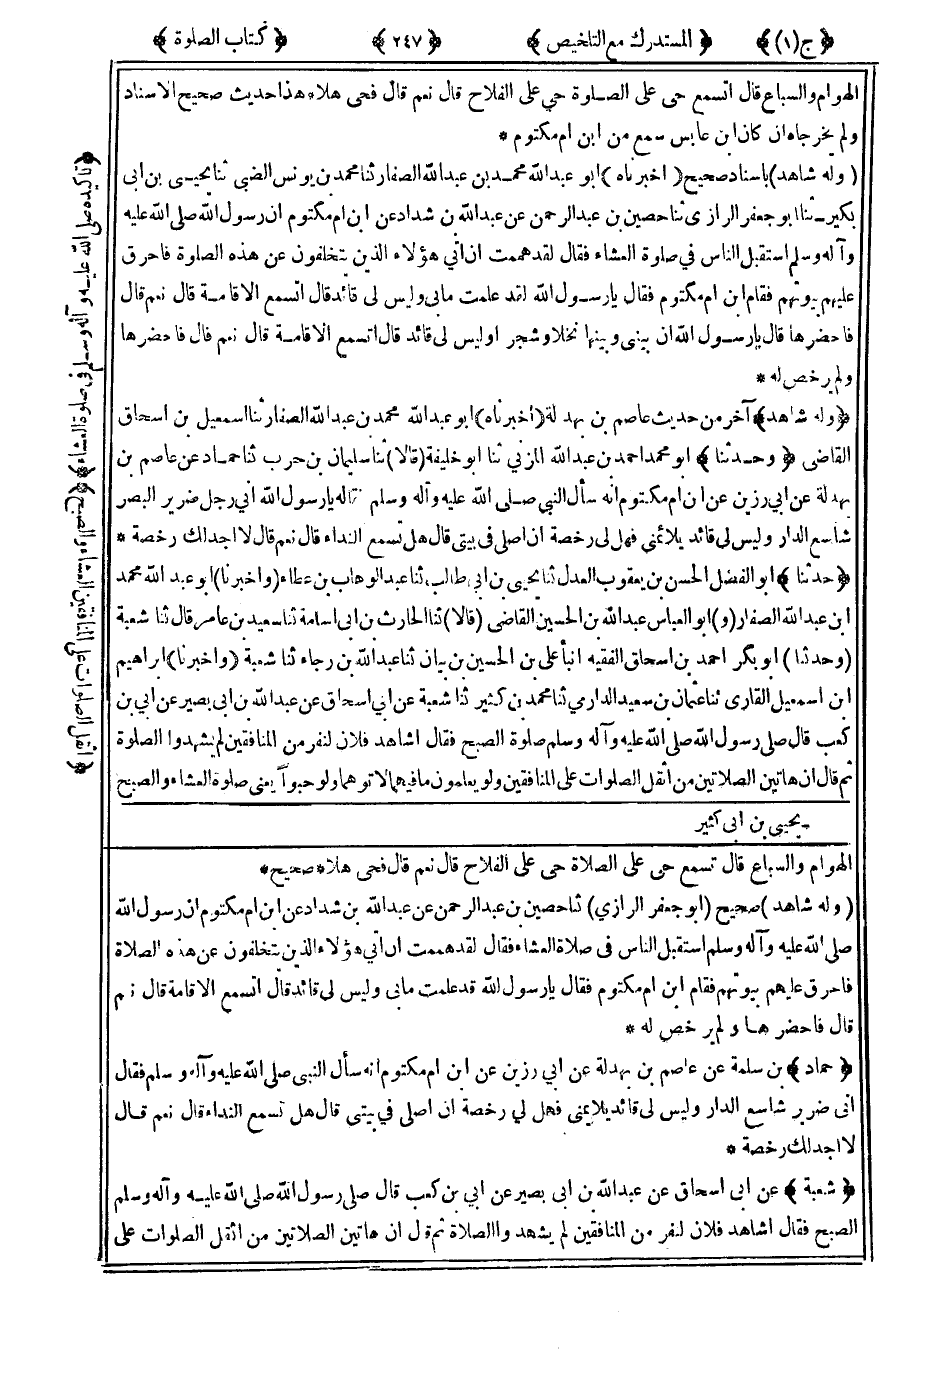 ﴿ ج (١) ﴾ ﴿ المستدرك مع التلخيص ﴾ ﴿ ٢٤٧ ﴾ ﴿ كتاب الصلوة ﴾
الهوام والسباع قال اتسمع حى على الصلوة حي على الفلاح قال نعم قال فحى هلا * هذا حديث صحيح الاسناد
ولم يخرجاه ان كان ابن عابس سمع من ابن ام مكتوم *
( وله شاهد ) باسناد صحيح ( اخبرناه ) ابو عبد الله محمد بن عبد الله الصفار ثنا محمد بن يونس الضبي ثنا يحيى بن ابى
بكير ثنا ابو جعفر الرازى ثنا حصين بن عبد الرحمن عن عبد الله بن شداد عن ابن ام مكتوم ان رسول الله صلى الله عليه
وآله وسلم استقبل الناس في صلوة العشاء فقال لقد هممت ان آتي هؤلاء الذين يتخلفون عن هذه الصلوة فاحرق
عليهم بيوتهم فقام ابن ام مكتوم فقال يا رسول الله لقد علمت مابى وليس لى قائد قال اتسمع الاقامة قال نعم قال
فاحضرها قال يا رسول الله ان بينى وبينها نخلا وشجر او ليس لى قائد قال اتسمع الاقامة قال نعم قال فاحضرها
ولم يرخص له *
﴿ وله شاهد ﴾ آخر من حديث عاصم بن بهدلة ( اخبرناه ) ابو عبد الله محمد بن عبد الله الصفار ثنا اسمعيل بن اسحاق
القاضى ﴿ وحدثنا ﴾ ابو محمد احمد بن عبد الله المزني ثنا ابو خليفة ( قالا ) ثنا سليمان بن حرب ثنا حماد عن عاصم بن
بهدلة عن ابي رزين عن ابن ام مكتوم انه سأل النبي صلى الله عليه وآله وسلم فقال يا رسول الله اني رجل ضرير البصر
شاسع الدار وليس لي قائد يلائمني فهل لى رخصة ان اصلى في بيتي قال هل تسمع النداء قال نعم قال لا اجد لك رخصة *
﴿ حدثنا ﴾ ابو الفضل الحسن بن يعقوب العدل ثنا يحيى بن ابي طالب ثنا عبد الوهاب بن عطاء ( واخبرنا ) ابو عبد الله محمد
ابن عبد الله الصفار ( و ) ابو العباس عبد الله بن الحسين القاضى ( قالا ) ثنا الحارث بن ابى اسامة ثنا سعيد بن عامر قال ثنا شعبة
( وحدثنا ) ابو بكر احمد بن اسحاق الفقيه انبأ على بن الحسين بن بيان ثنا عبد الله بن رجاء ثنا شعبة ( واخبرنا ) ابراهيم
ابن اسمعيل القارى ثنا عثمان بن سعيد الدارمي ثنا محمد بن كثير ثنا شعبة عن ابي اسحاق عن عبد الله بن ابى بصير عن ابي بن
كعب قال صلى رسول الله صلى الله عليه وآله وسلم صلوة الصبح فقال اشاهد فلان لنفر من المنافقين لم يشهدوا الصلوة
ثم قال ان هاتين الصلاتين من اثقل الصلوات على المنافقين ولو يعلمون ما فيهما لاتوهما ولو حبوآ يعنى صلوة العشاء والصبح
- يحيى بن ابى كثير
الهوام والسباع قال تسمع حى على الصلاة حى على الفلاح قال نعم قال فحى هلا * صحيح *
( وله شاهد ) صحيح ( ابو جعفر الرازي ) ثنا حصين بن عبد الرحمن عن عبد الله بن شداد عن ابن ام مكتوم ان رسول الله
صلى الله عليه وآله وسلم استقبل الناس فى صلاة العشاء فقال لقد هممت ان آتي هؤلاء الذين يتخلفون عن هذه الصلاة
فاحرق عليهم بيوتهم فقام ابن ام مكتوم فقال يا رسول الله قد علمت مابى وليس لى قائد قال اتسمع الاقامة قال نعم
قال فاحضرها ولم يرخص له *
﴿ حماد ﴾ بن سلمة عن عاصم بن بهدلة عن ابي رزين عن ابن ام مكتوم انه سأل النبي صلى الله عليه وآله وسلم فقال
انى ضرير شاسع الدار وليس لى قائد يلائمنى فهل لي رخصة ان اصلى في بيتى قال هل تسمع النداء قال نعم قال
لا اجد لك رخصة *
﴿ شعبة ﴾ عن ابى اسحاق عن عبد الله بن ابى بصير عن ابي بن كعب قال صلى رسول الله صلى الله عليه وآله وسلم
الصبح فقال اشاهد فلان لنفر من المنافقين لم يشهدوا الصلاة ثم قال ان هاتين الصلاتين من اثقل الصلوات على
﴿ تاكيده صلى الله عليه وآله وسلم فى صلوة العشاء ﴾
﴿ اثقل الصلوات على المنافقين العشاء والصبح ﴾